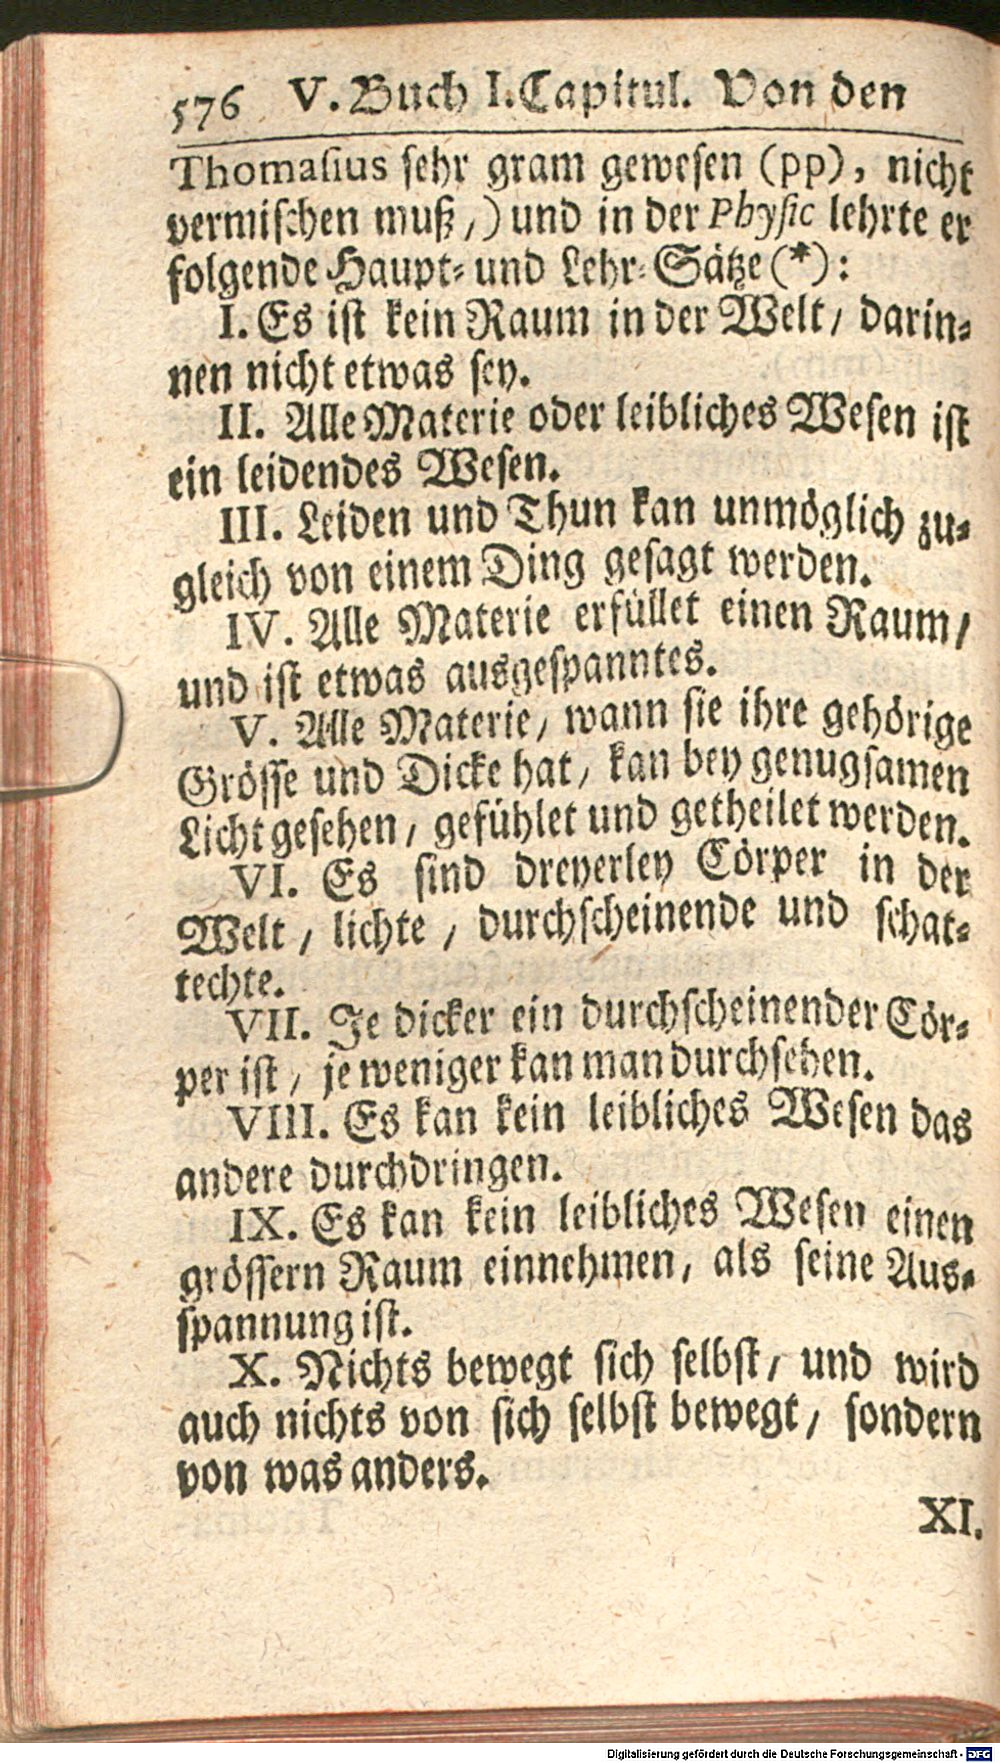 576 V. Buch I. Capitul. Von den
Thomasius sehr gram gewesen (pp), nicht
vermischen muß,) und in der Physic lehrte er
folgende Haupt- und Lehr-Sätze (*):
I. Es ist kein Raum in der Welt/ darin-
nen nicht etwas sey.
II. Alle Materie oder leibliches Wesen ist
ein leidendes Wesen.
III. Leiden und Thun kan unmöglich zu-
gleich von einem Ding gesagt werden.
IV. Alle Materie erfüllet einen Raum/
und ist etwas ausgespanntes.
V. Alle Materie/ wann sie ihre gehörige
Grösse und Dicke hat/ kan bey genugsamen
Licht gesehen/ gefühlet und getheilet werden.
VI. Es sind dreyerley Cörper in der
Welt/ lichte/ durchscheinende und schat-
techte.
VII. Je dicker ein durchscheinender Cör-
per ist/ je weniger kan man durchsehen.
VIII. Es kan kein leibliches Wesen das
andere durchdringen.
IX. Es kan kein leibliches Wesen einen
grössern Raum einnehmen, als seine Aus-
spannung ist.
X. Nichts bewegt sich selbst/ und wird
auch nichts von sich selbst bewegt/ sondern
von was anders.
XI.
Digitalisierung gefördert durch die Deutsche Forschungsgemeinschaft - DFG